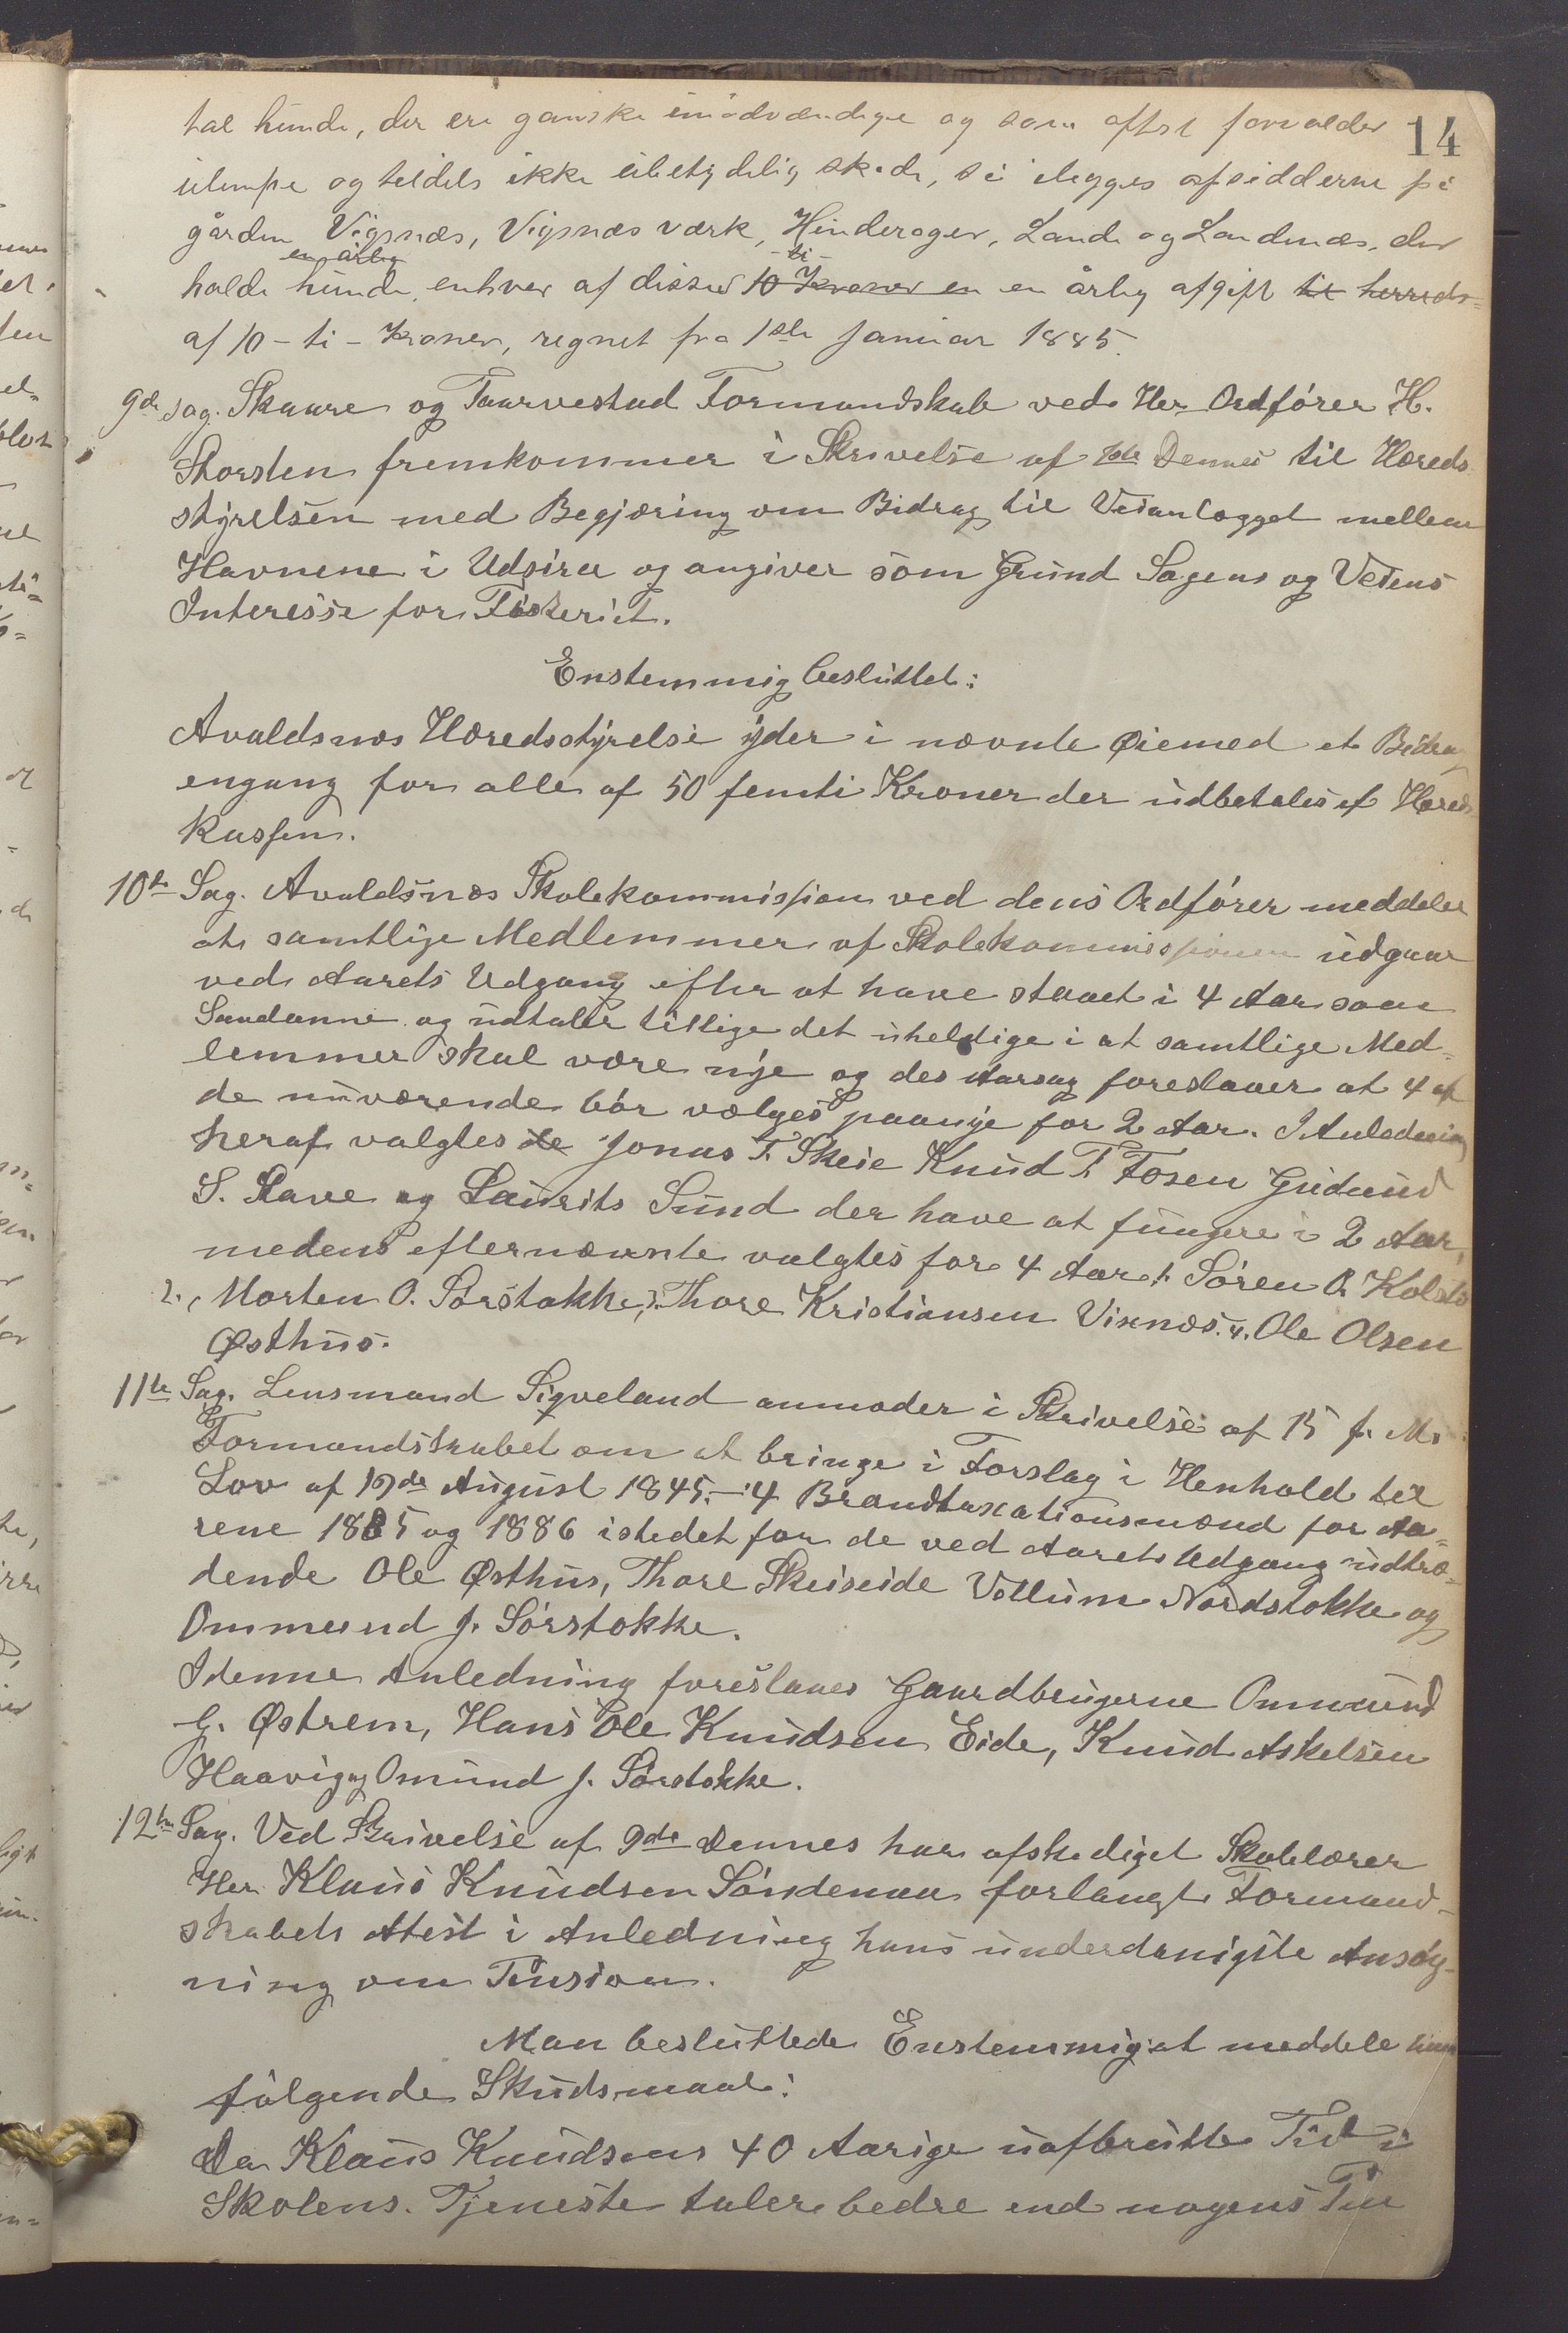 14
tal hunde, der ere ganske unødvændige og som oftest forvolder
ulempe og teldels ikke ubetydelig skade, så ilegges opsidderne på
gården Vigsnæs, Vigsnæs værk, Hinderager, Lande og Landenæs, der
en årlig - ti -
holde hunde, enhver af disse 10 Kroner en en årlig afgift til herreds-
af 10 - ti - Kroner, regnet fra 1ste Januar 1885.
9de Sag. Skaare og Taarvestad Formandskab ved Her Ordfører H.
Storsten fremkommer i Skrivelse af Dennes til Hæreds
styrelsen med Begjæring om Bidrag til Veianlægget mellem
Havnene i Udsire og angiver som Grund Sagens og Veiens
Interesse for Fiskeriet.
Enstemmig besluttet:
Avaldsnæs Hæredsstyrelse yder i nævnte Øiemed et Bidrag
engang for alle af 50 femti Kroner der udbetales af Hæreds
kassen.
10de Sag. Avaldsnæs Skolekommission ved dens Ordfører meddeler
at samtlige Medlemmer af Skolekommissionen udgaar
ved Aarets Udgang efter at have staaet i 4 Aar som
Saadanne og udtaler tillige det uheldige i at samtlige Med-
lemmer skal være nye og des Aarsag foreslaaer at 4 af
de nuværende bør vælges paanye for 2 Aar. I Anledning
heraf valgtes de Jonas T. Skeie Knud T. Fosen Gudmund
S. Stave og Laurits Sund der have at fungere i 2 Aar,
medens efternævnte valgtes for 4 Aar 1. Søren O. Kolstø
2. Morten O. Sørstokke, 3. Thore Kristiansen Viknæs. 4. Ole Olsen
Østhus.
11te Sag. Lensmand Sigveland anmoder i Skrivelse af 15 f. M.
Formandskabet om at bringe i Forslag i Henhold til
Lov af 19de August 1845. - 4 Brandtaxationsmænd for Aa-
rene 1885 og 1886 istedet for de ved Aarets Udgang udtræ-
dende Ole Østhus, Thore Skeiseide Vellum Nordstokke og
Ommund J. Sørstokke.
I denne Anledning foreslaaes Gaardbrugerne Ommund
G. Østrem, Hans Ole Knudsen Eide, Knud Askelsen
Haavig og Omund J. Sørstokke.
12te Sag. Ved Skrivelse af 9de Dennes har afskediget Skolelærer
Her Klaus Knudsen Søndenaa forlangt Formand-
skabets Atest i Anledning hans underdanigste Ansøg-
ning om Pension.
Man besluttede Enstemmig at meddele ham
følgende Skudsmaal:
Da Klaus Knudsens 40 Aarige uafbrutte Tid i
Skolens Tjeneste taler bedre end nogens